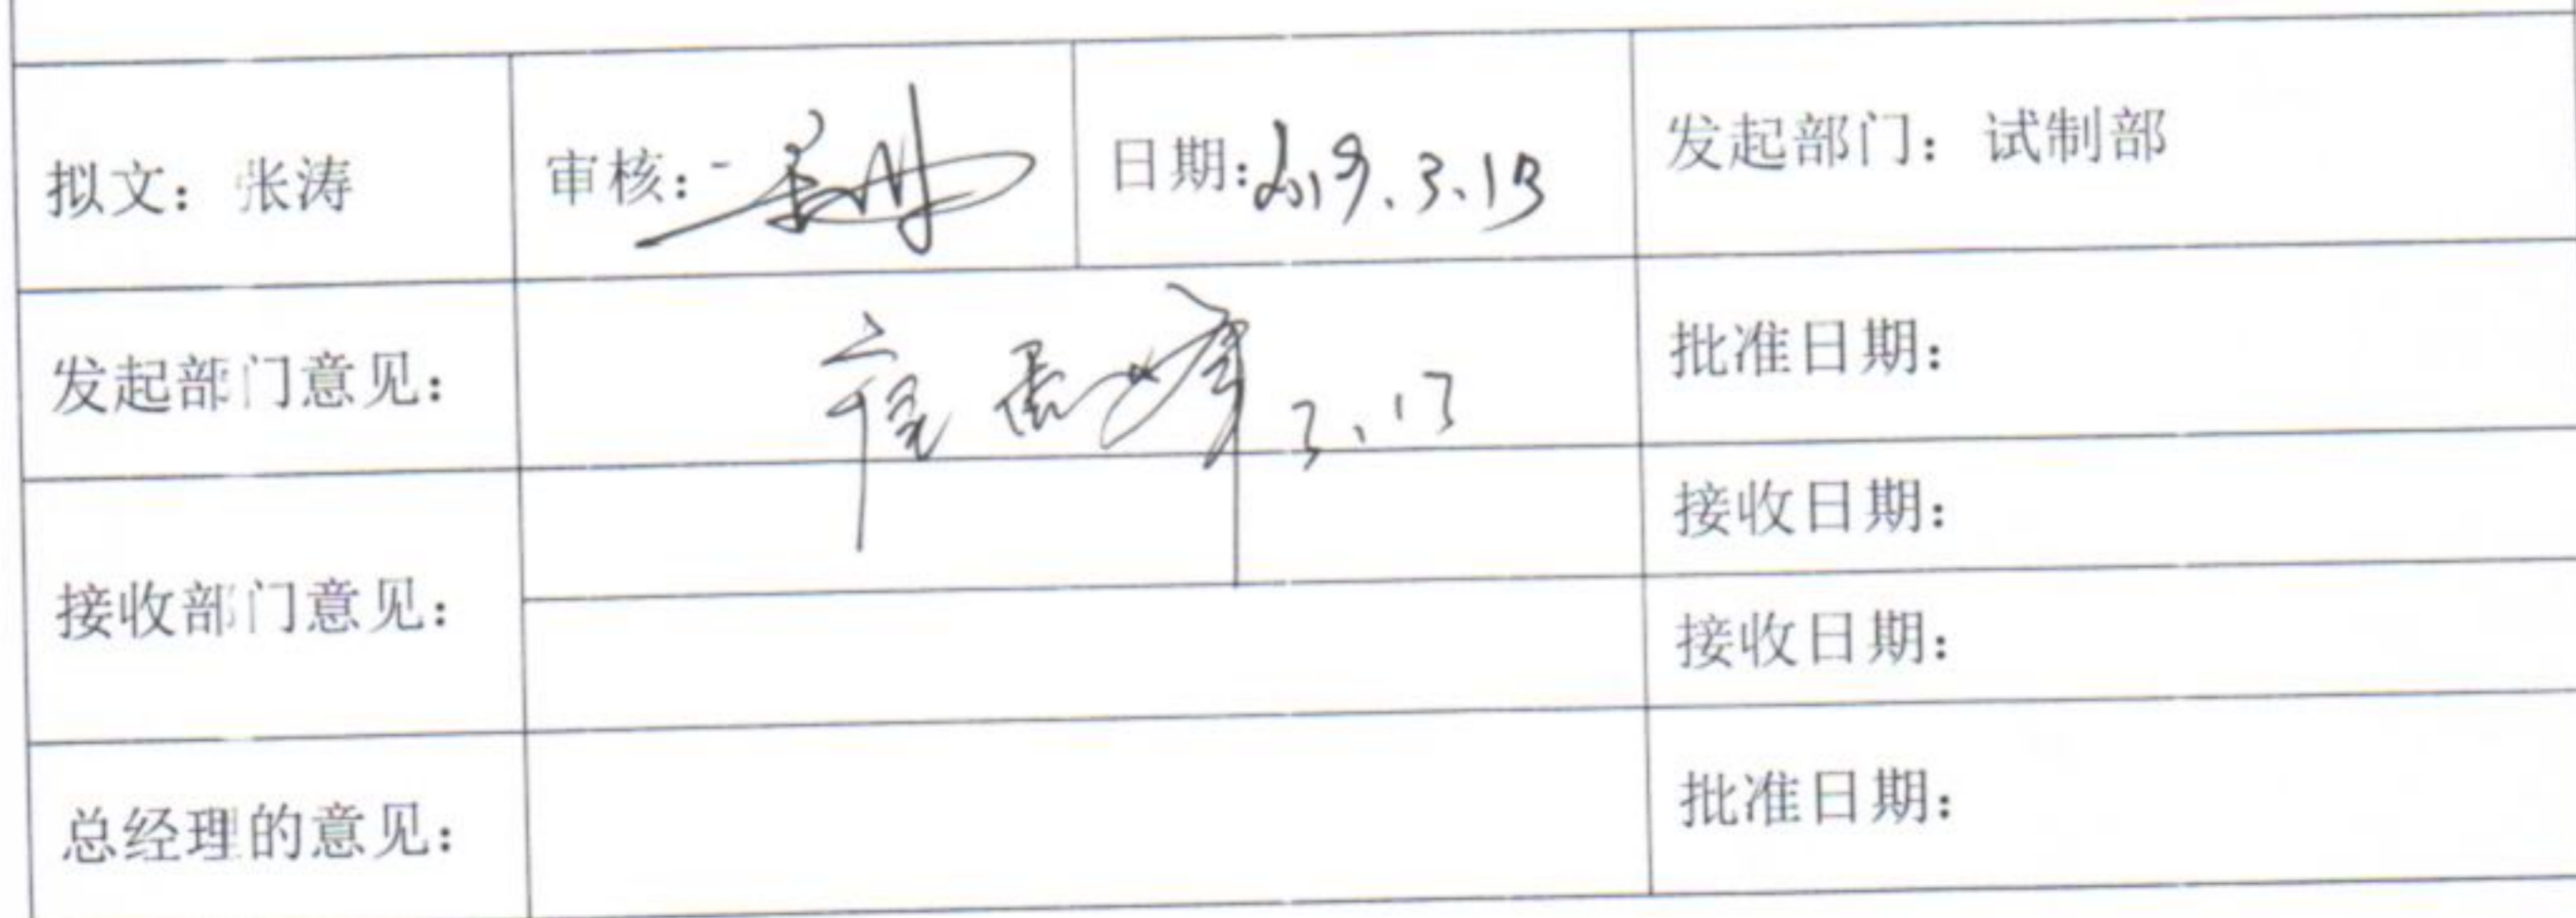 拟文：张涛
审核：
日期：2019.3.13
发起部门：试制部
发起部门意见：
3.13
批准日期：
接收部门意见：
接收日期：
接收日期：
总经理的意见：
批准日期：